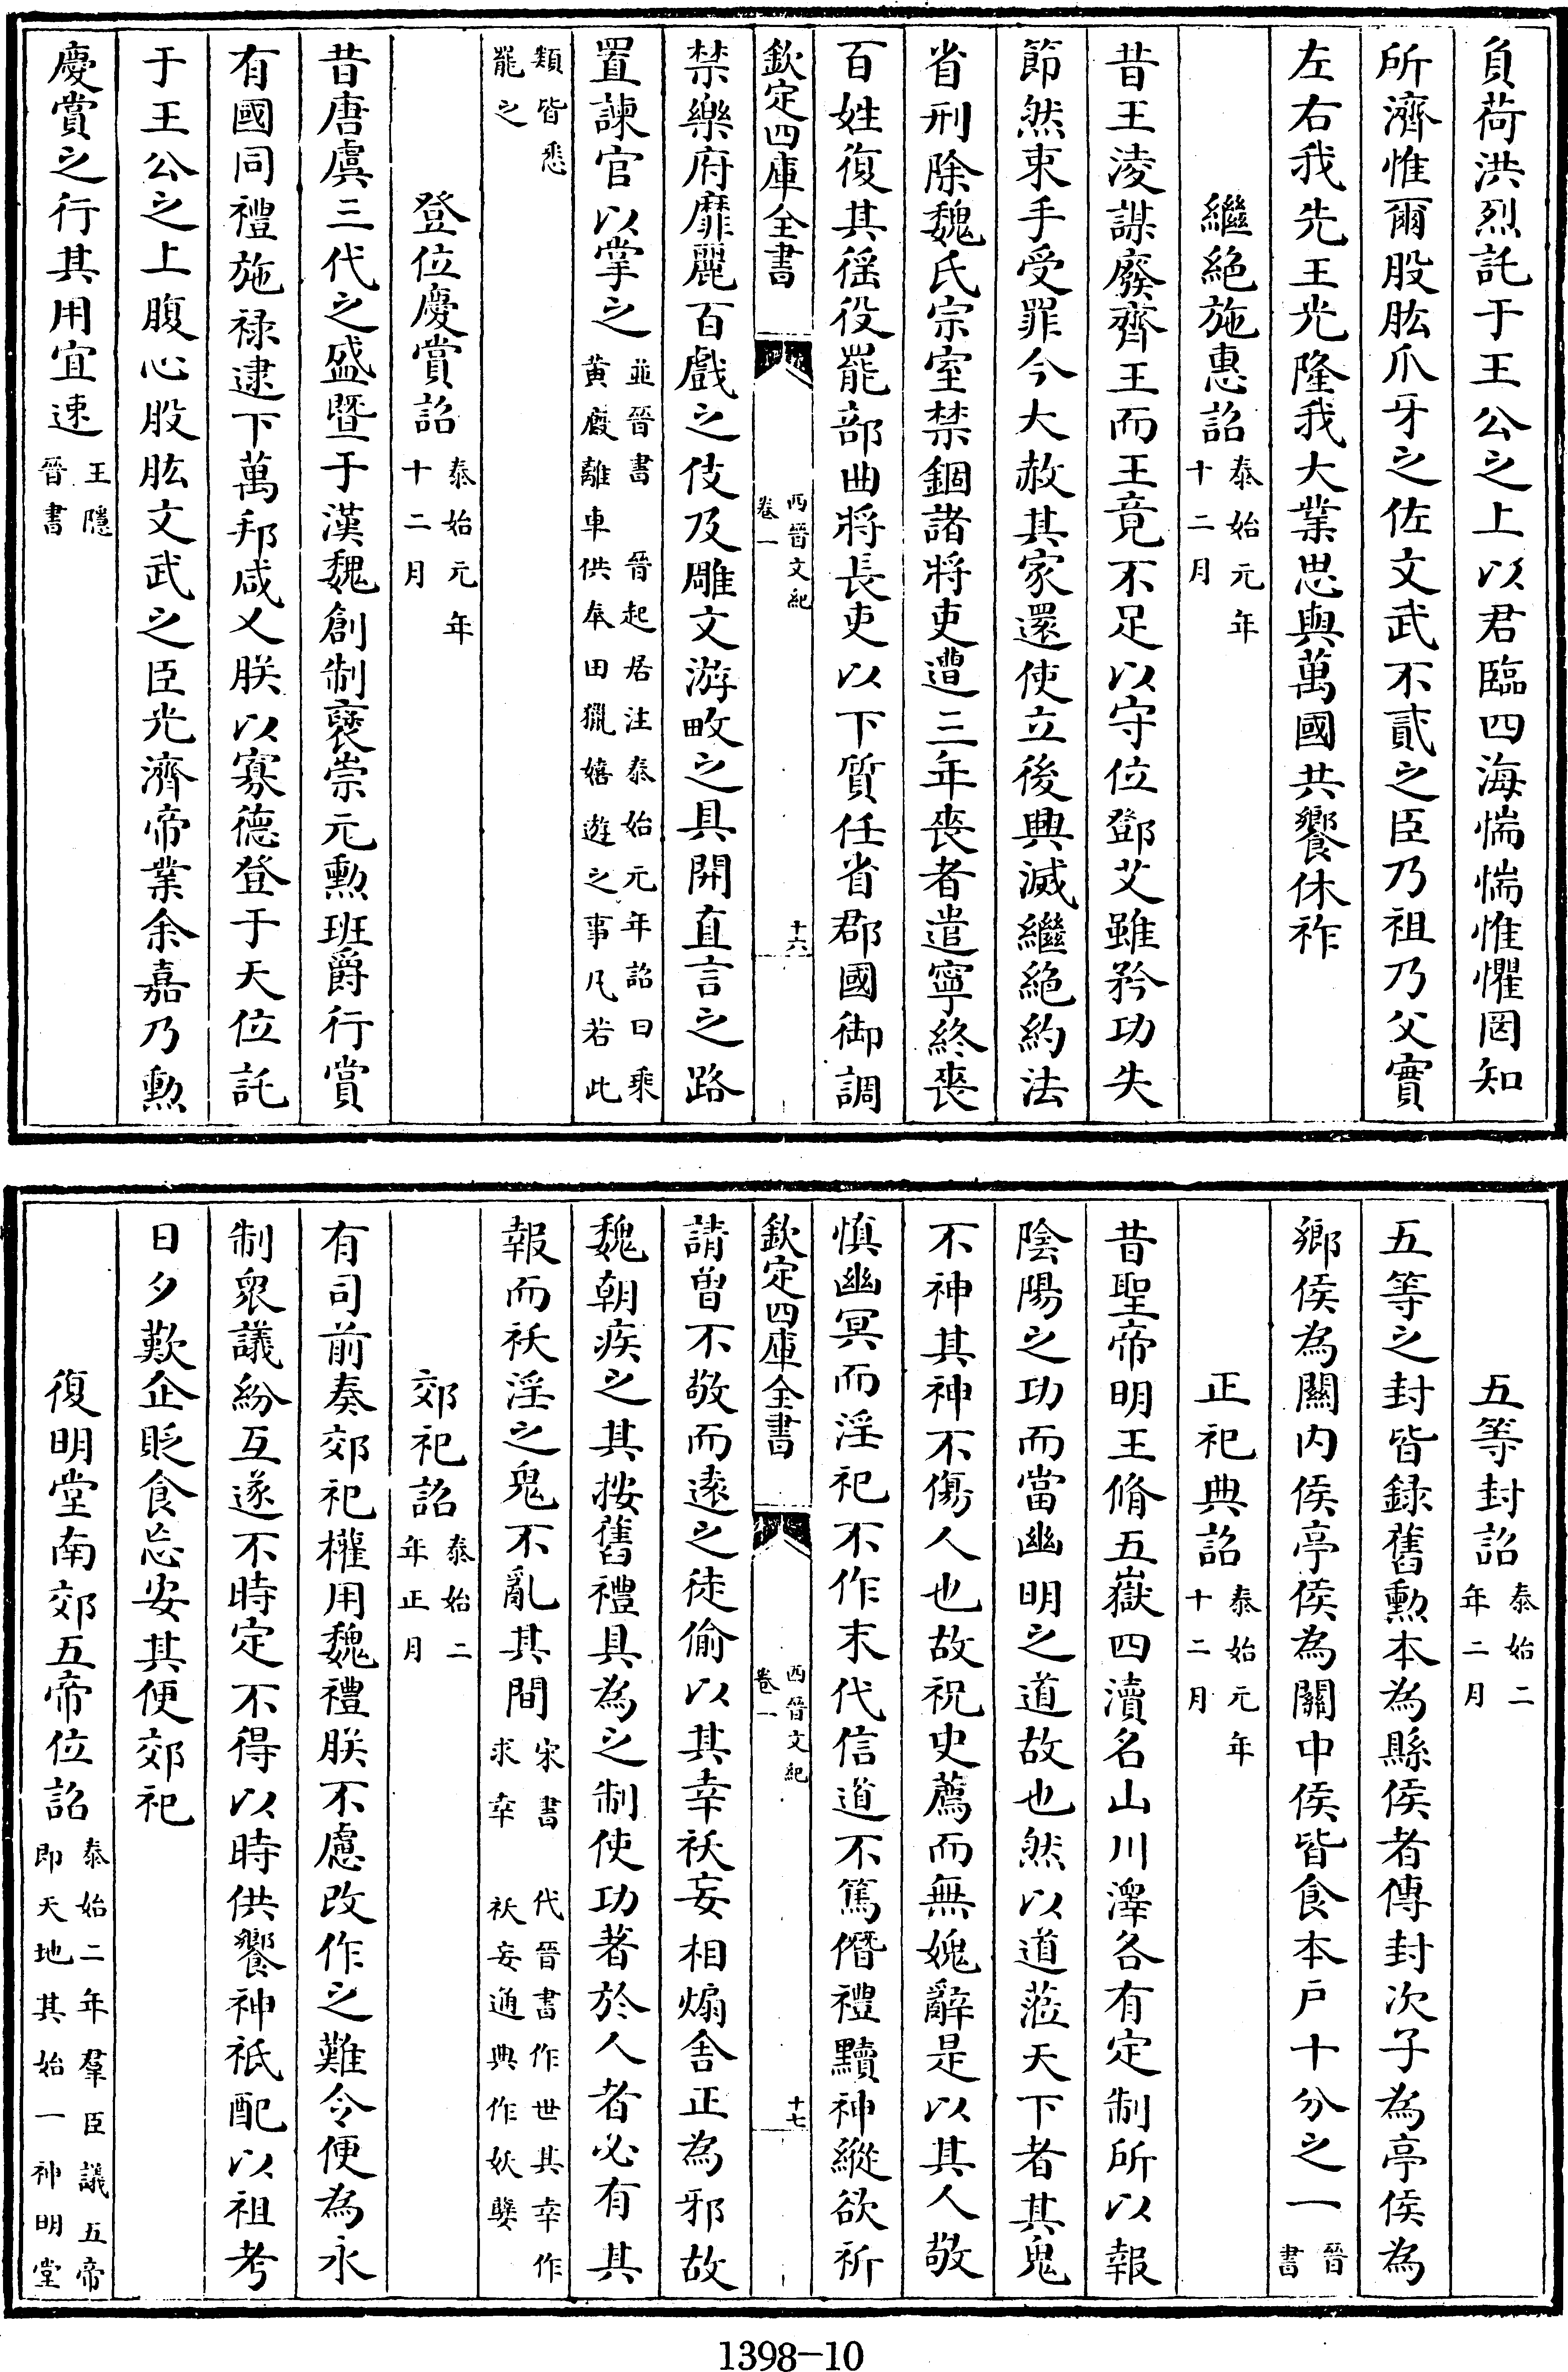 負荷洪烈託于王公之上以君臨四海惴惴惟懼罔知
所濟惟爾股肱爪牙之佐文武不貳之臣乃祖乃父實
左右我先王光隆我大業思與萬國共饗休祚
繼絶施惠詔泰始元年十二月
昔王淩謀廢齊王而王竟不足以守位鄧艾雖矜功失
節然束手受罪今大赦其家還使立後興滅繼絶約法
省刑除魏氏宗室禁錮諸將吏遭三年喪者遣寧終喪
百姓復其徭役罷部曲將長吏以下質任省郡國御調
欽定四庫全書 西晉文紀卷一 十六
禁樂府靡麗百戲之伎及雕文游畋之具開直言之路
置諫官以掌之並晉書 晉起居注泰始元年詔曰乘黃廄離車供奉田獵嬉遊之事凡若此
類皆悉罷之
登位慶賞詔泰始元年十二月
昔唐虞三代之盛暨于漢魏創制褒崇元勲班爵行賞
有國同禮施祿逮下萬邦咸乂朕以寡德登于天位託
于王公之上腹心股肱文武之臣光濟帝業余嘉乃勲
慶賞之行其用宜速王隱晉書
五等封詔泰始二年二月
五等之封皆録舊勲本為縣侯者傳封次子為亭侯為
鄉侯為關内侯亭侯為關中侯皆食本户十分之一晉書
正祀典詔泰始元年十二月
昔聖帝明王脩五嶽四瀆名山川澤各有定制所以報
陰陽之功而當幽明之道故也然以道蒞天下者其鬼
不神其神不傷人也故祝史薦而無媿辭是以其人敬
慎幽冥而淫祀不作末代信道不篤僭禮黷神縱欲祈
欽定四庫全書 西晉文紀卷一 十七
請曽不敬而遠之徒偷以其幸祅妄相煽舍正為邪故
魏朝疾之其按舊禮具為之制使功著於人者必有其
報而祅淫之鬼不亂其間宋書 代晉書作世其幸作求幸 祅妄通典作妖孽
郊祀詔泰始二年正月
有司前奏郊祀權用魏禮朕不慮改作之難令便為永
制衆議紛互遂不時定不得以時供饗神祇配以祖考
日夕歎企貶食忘安其便郊祀
復明堂南郊五帝位詔泰始二年羣臣議五帝即天地其始一神明堂
1398-10